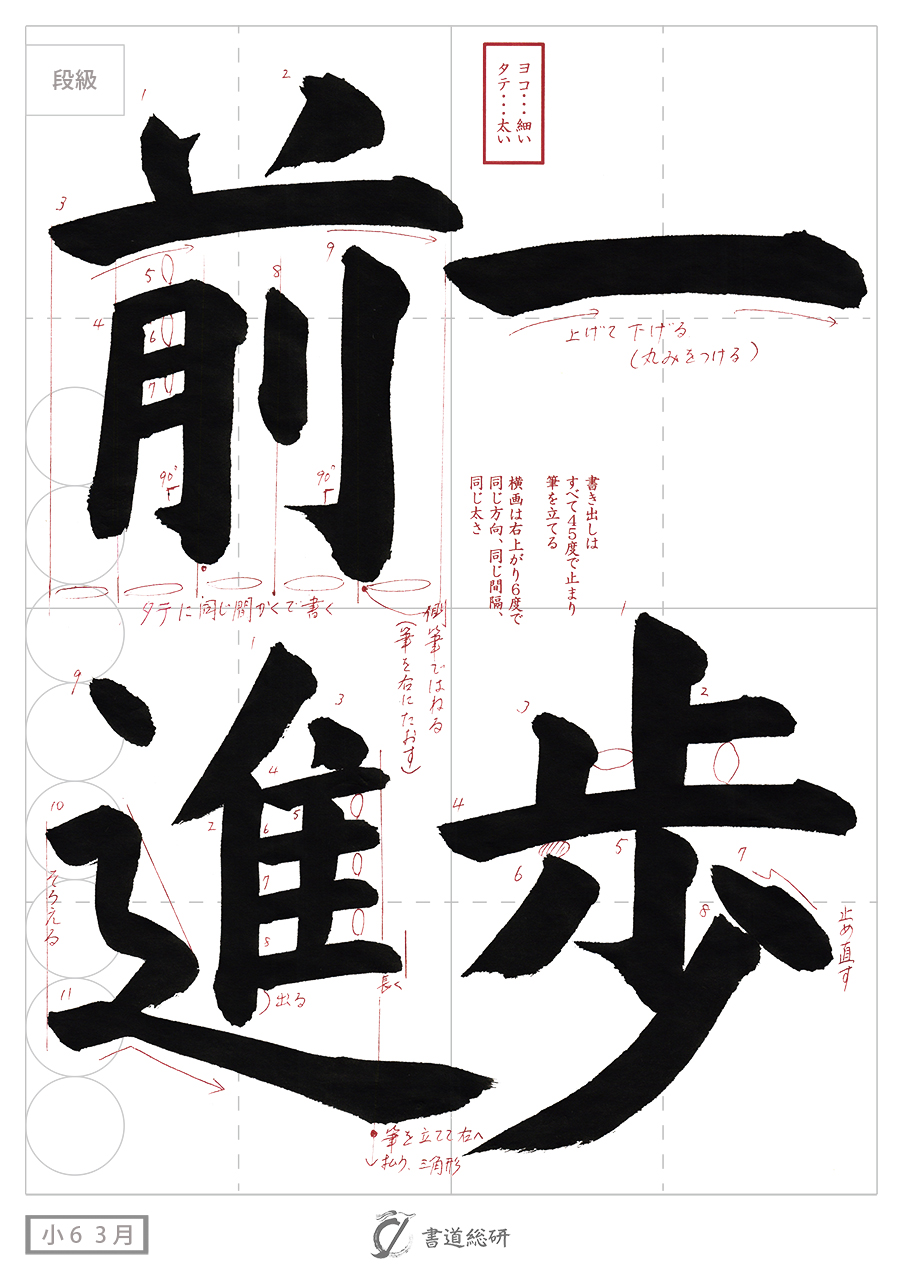 一歩
前進
ヨコ・・・細い
タテ・・・太い
段級
1
2
3
4
5
6
7
8
9
上げて下げる
(丸みをつける)
書き出しは
すべて45度で止まり
筆を立てる
横画は右上がり6度で
同じ方向、同じ間隔、
同じ太さ
90°
90°
タテに同じ間かくで書く
側筆ではねる
(筆を右にたおす)
1
2
3
4
5
6
7
8
止め直す
1
2
3
4
5
6
7
8
9
10
11
そろえる
出る
長く
筆を立てて右へ
払う. 三角形
小6 3月
書道総研